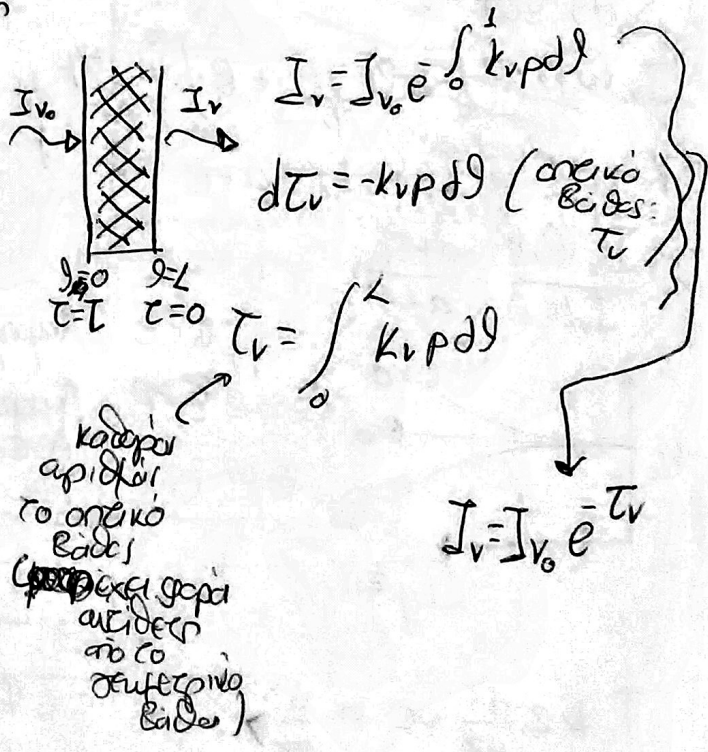 I_{ν₀}
I_ν
I_ν = I_{ν₀} e^{-∫₀^l k_ν ρ dl}
dτ_ν = -k_ν ρ dl (οπτικό
βάθος:
τ_ν)
l=0 l=L
τ=τ τ=0
τ_ν = ∫₀^L k_ν ρ dl
καθαρός
αριθμός
το οπτικό
βάθος
έχει φορά
αντίθετη
από το
γεωμετρικό
βάθος)
I_ν = I_{ν₀} e^{-τ_ν}